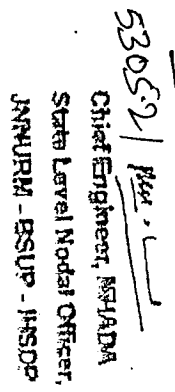 53052/
Chief Engineer, MHADA
State Level Nodal Officer,
JNNURM - BSUP - IHSDP